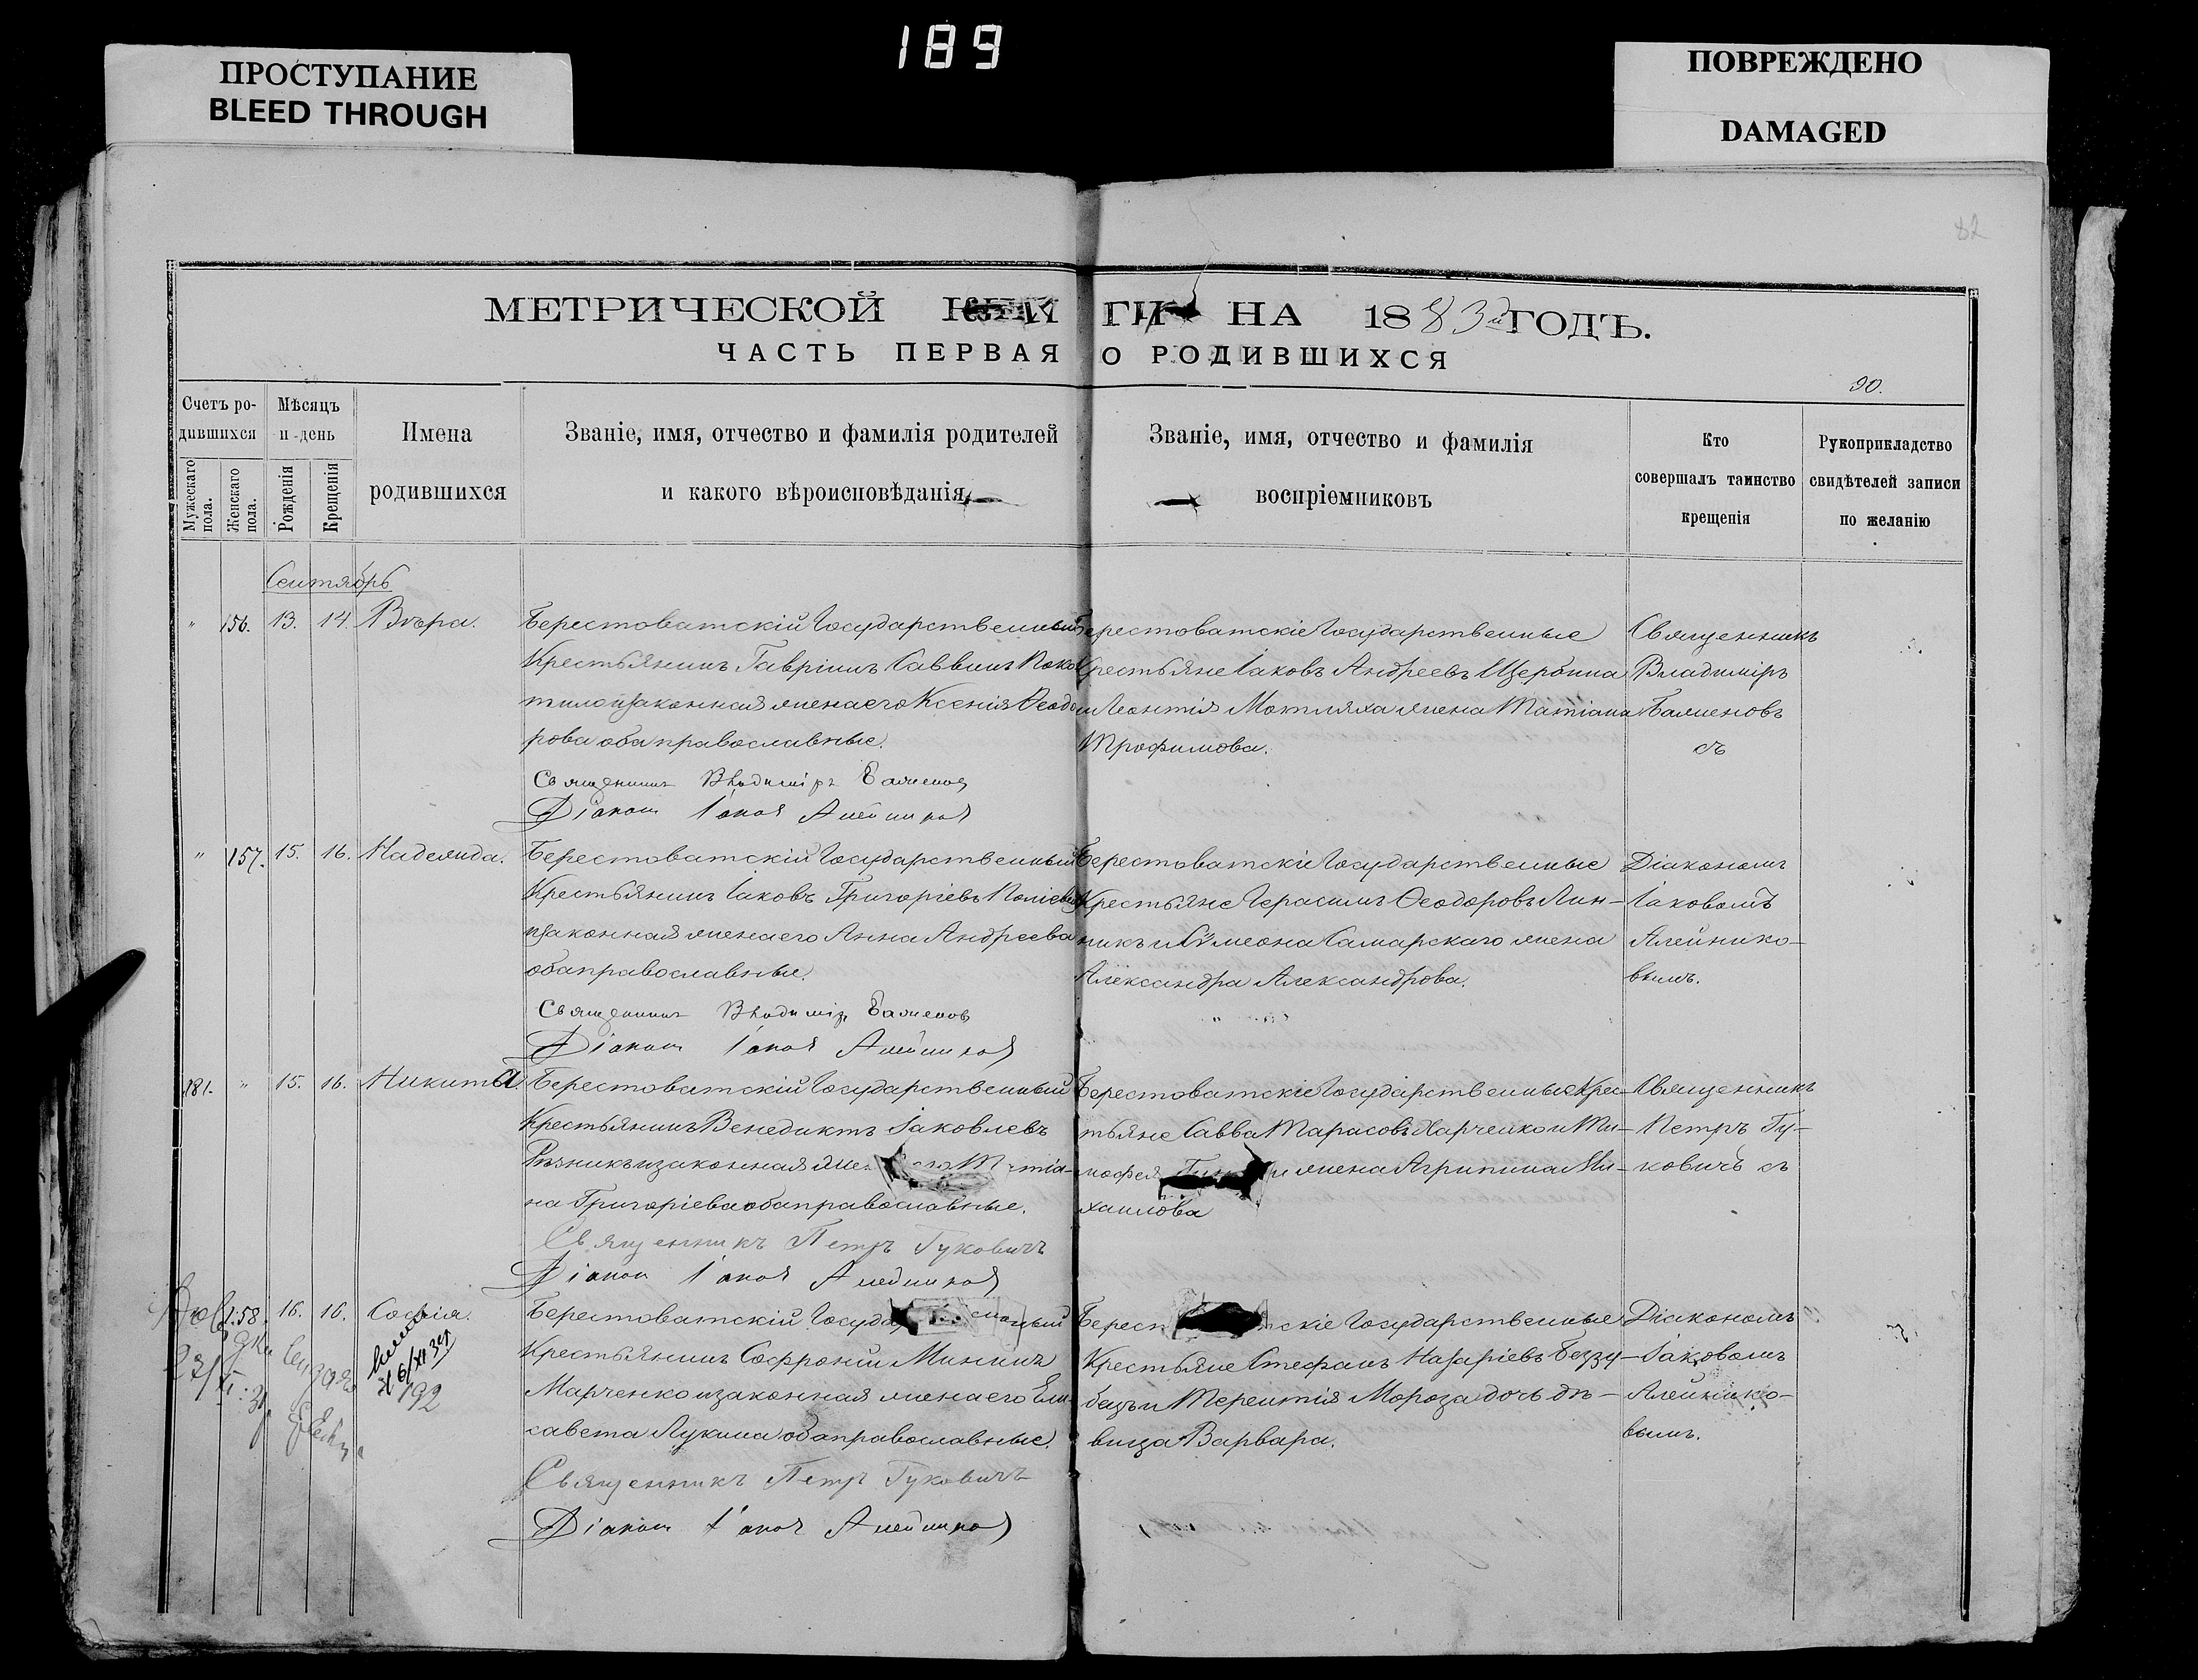 189
ПРОСТУПАНИЕ
BLEED THROUGH
ПОВРЕЖДЕНО
DAMAGED
82
МЕТРИЧЕСКОЙ КНИГИ НА 1883й ГОДЪ.
ЧАСТЬ ПЕРВАЯ О РОДИВШИХСЯ
90.
Счетъ ро-
дившихся
Мужескаго пола.
Женскаго пола.
Мѣсяцъ
и день
Рожденія
Крещенія
Имена
родившихся
Званіе, имя, отчество и фамилія родителей
и какого вѣроисповѣданія
Званіе, имя, отчество и фамилія
воспріемниковъ
Кто
совершалъ таинство
крещенія
Рукоприкладство
свидѣтелей записи
по желанію
Сентябрь
" 156. 13. 14. Вѣра.
Берестоватскій Государственный
Крестьянинъ Гавріилъ Саввинъ Пока
тило и законная жена его Ксенія Ѳеодо
рова оба православные.
Священникъ Владиміръ Баженов
Діакон Іаков Алейников
Берестоватскіе Государственные
Крестьяне Іаковъ Андреевъ Щербина
и Леонтія Мотляха жена Татіана
Трофимова.
Священникъ
Владиміръ
Баженовъ
съ
" 157. 15. 16. Надежда.
Берестоватскій Государственный
Крестьянинъ Іаковъ Григоріевъ
и законная жена его Анна Андреева
оба православные.
Священникъ Владимір Баженов
Діакон Іаков Алейников
Берестоватскіе Государственные
Крестьяне Герасимъ Ѳеодоровъ Лин-
никъ и Сѵмеона Самарскаго жена
Александра Александрова.
Діакономъ
Іаковомъ
Алейнико-
вымъ.
181. " 15. 16. Никита
Берестоватскій Государственный
Крестьянинъ Венедиктъ Іаковлевъ
Рѣзникъ и законная жен его Татіа-
на Григоріева оба православные.
Священникъ Петръ Гуковичъ
Діакон Іаков Алейников
Берестоватскіе Государственные Крес-
тьяне Савва Тарасовъ Харченко и Ти-
мофея жена Агрипина Ми-
хаилова
Священникъ
Петръ Гу-
ковичъ съ
158. 16. 16. Софія.
192
Берестоватскій Госуда
Крестьянинъ Софроній Мининъ
Марченко и законная жена его Ели-
савета Лукина оба православные.
Священникъ Петръ Гуковичъ
Діакон Іаков Алейников
Берес скіе Государственные
Крестьяне Стефанъ Назаріевъ Беззу-
бецъ и Терентія Мороза дочь дѣ-
вица Варвара.
Діакономъ
Іаковомъ
Алейнико-
вымъ.